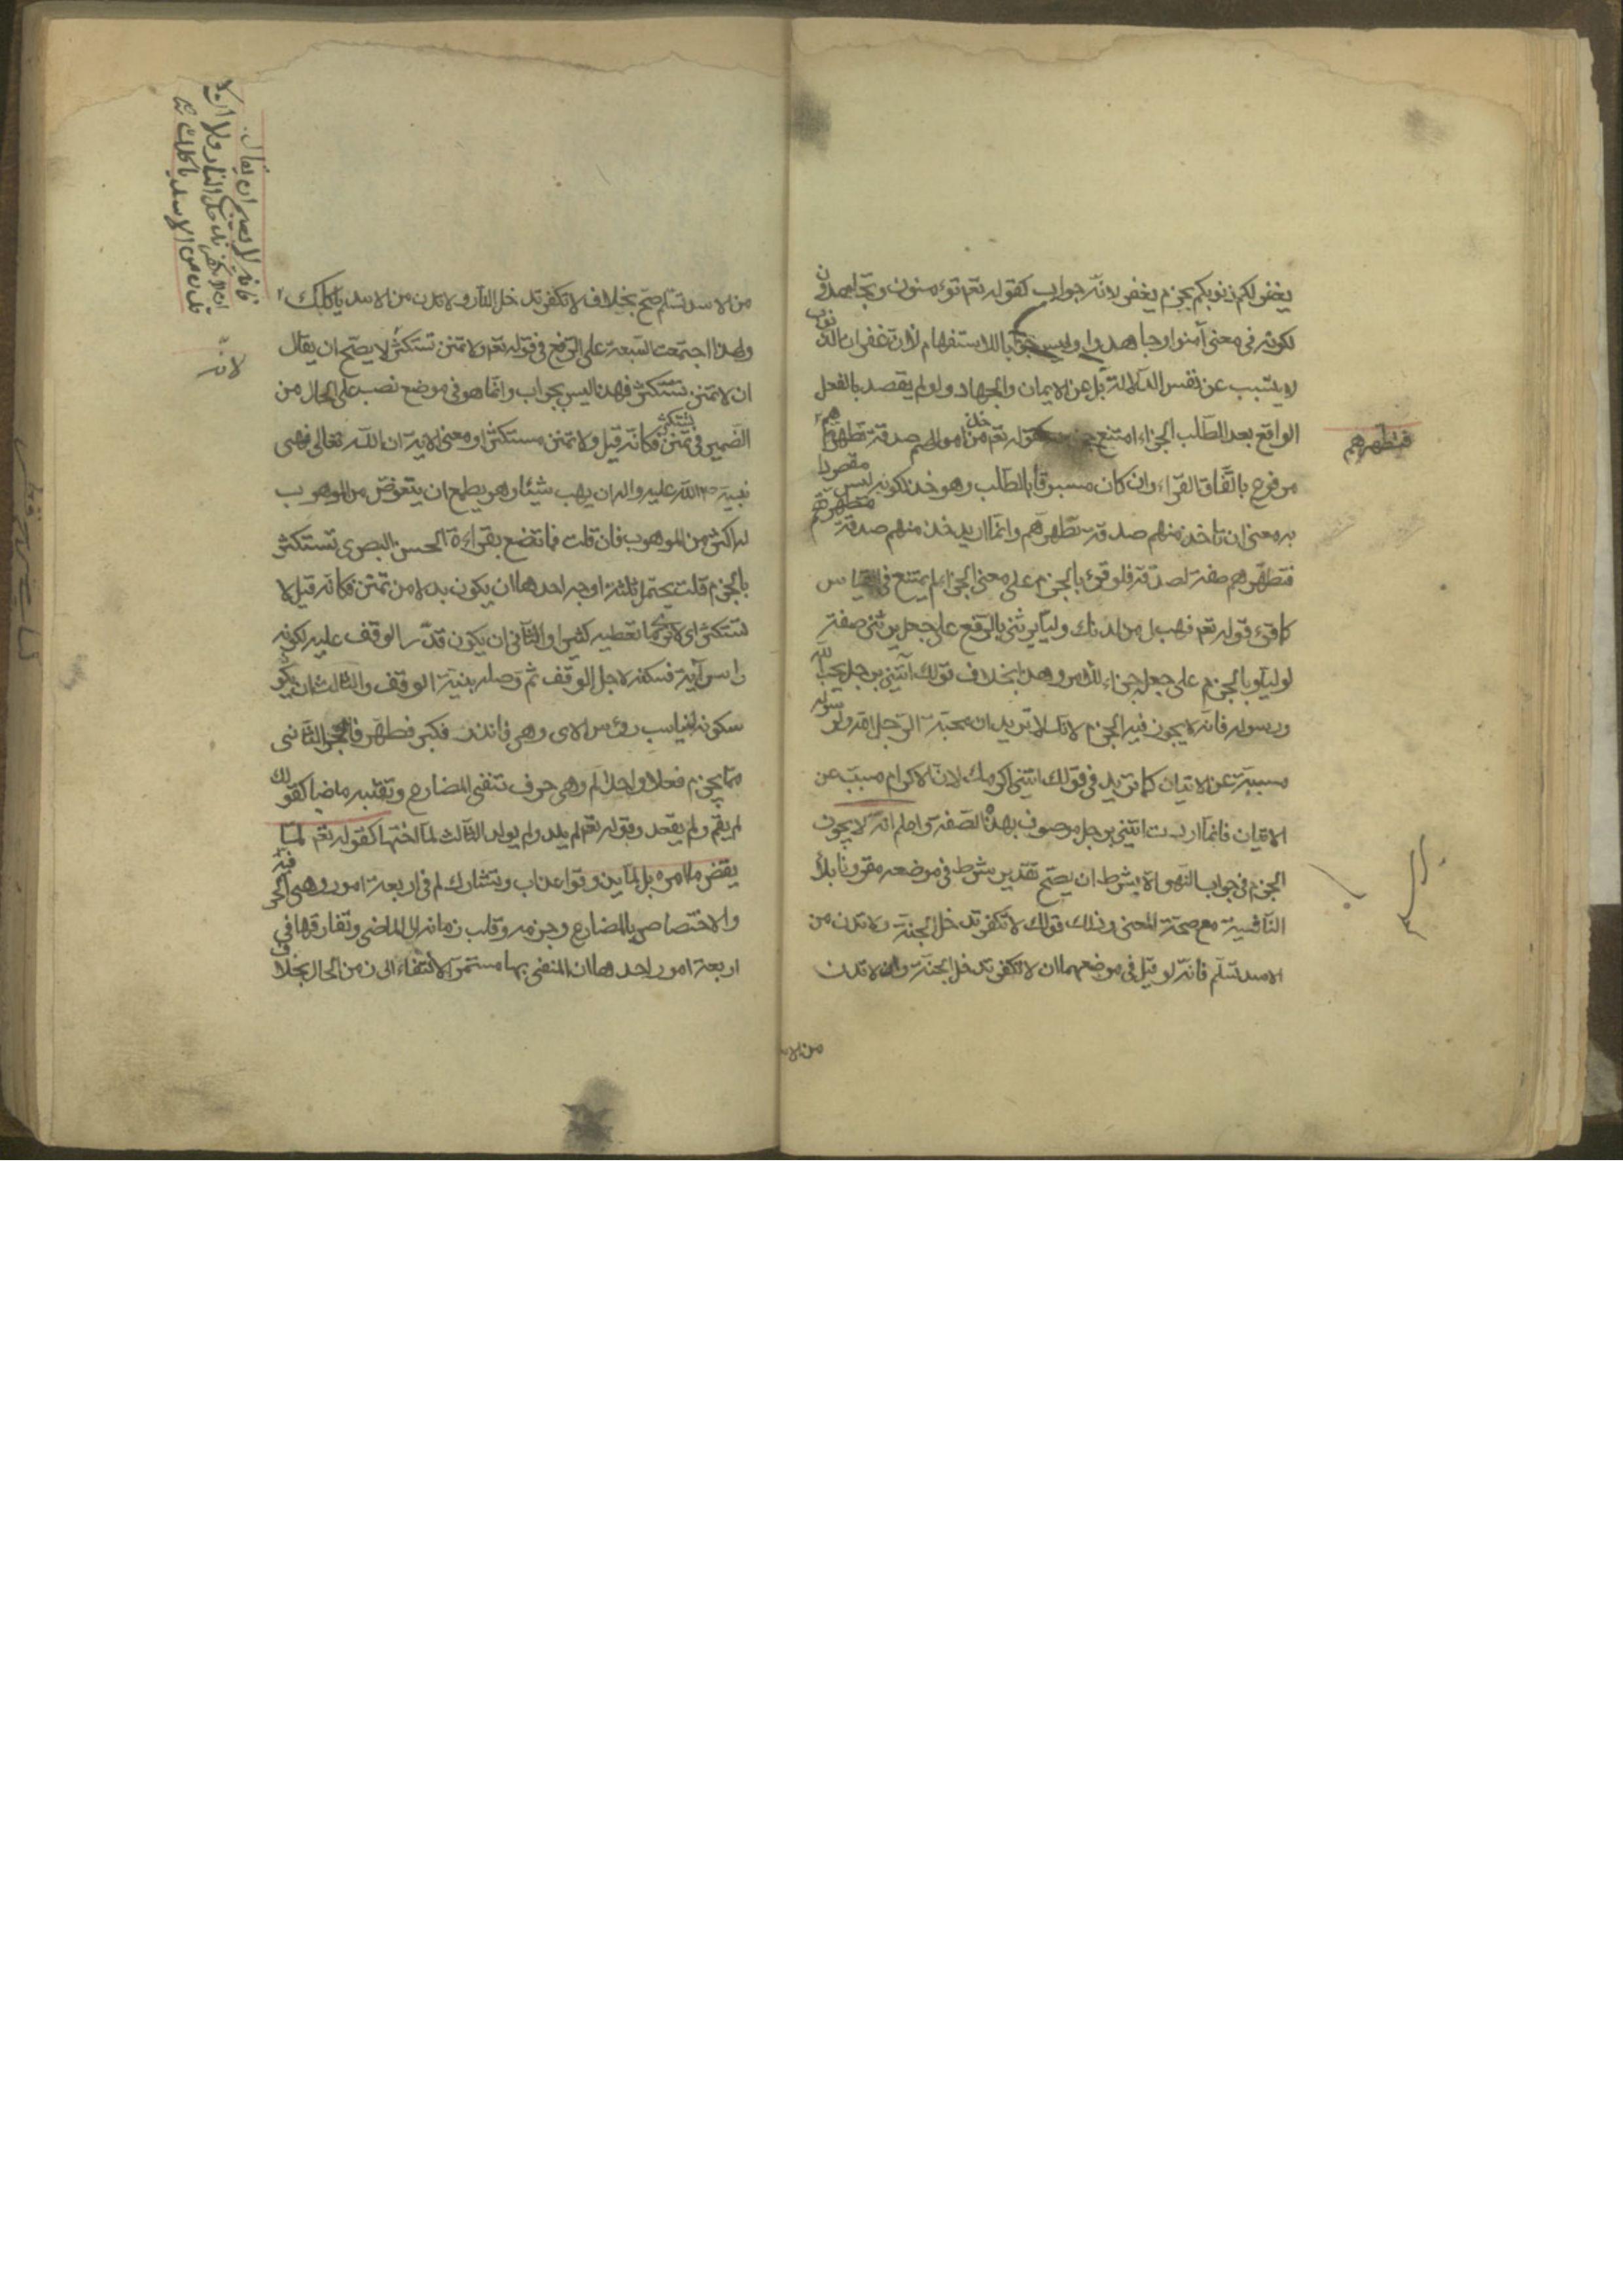 يغفر لكم ذنوبكم بجزم يغفر لانه جواب كقوله تعم تؤمنون وتجاهدون
لكونه فى معنى آمنوا وجاهدوا وليس جوابا للاستفهام لان غفران الذنوب
لا يتسبب عن نفس الدلالة بل عن الايمان والجهاد ولو لم يقصد بالفعل
الواقع بعد الطلب الجزاء امتنع جزمه كقوله تعم خذ من اموالهم صدقة تطهرهم
مرفوع باتفاق القراء وان كان مسبوقا بالطلب وهو خذ لكونه ليس مقصودا
به معنى ان تأخذ منهم صدقة تطهرهم وانما اريد خذ منهم صدقة مطهرة
فتطهرهم صفة لصدقة فلو قرئ بالجزم على معنى الجزاء لم يمتنع فى القياس
كما قرئ قوله تعم فهب لى من لدنك وليا يرثنى بالرفع على جعل يرثنى صفة
لوليا وبالجزم على جعله جزاء للامر وهذا بخلاف قولك ائتنى برجل يحب الله
ورسوله فانه لا يجوز فيه الجزم لانك لا تريد ان محبة الرجل الله ورسوله
مسببة عن الاتيان كما تريد فى قولك ائتنى اكرمك لان الاكرام مسبب عن
الاتيان فانما اردت ائتنى برجل موصوف بهذه الصفة واعلم انه لا يجوز
الجزم فى جواب النهى الا بشرط ان يصح تقدير شرط فى موضعه مقرونا بلا
النافية مع صحة المعنى وذلك قولك لا تكفر تدخل الجنة ولا تدن من
الاسد تسلم فانه لو قيل فى موضعهما ان لا تكفر تدخل الجنة وان لا تدن
من الاسد
فتطهرهم
من الاسد تسلم صح بخلاف لا تكفر تدخل النار ولا تدن من الاسد يأكلك
ولهذا اجتمعت السبعة على الرفع فى قوله تعم ولا تمنن تستكثر لا يصح ان يقال
ان لا تمنن تستكثر فهذا ليس بجواب وانما هو فى موضع نصب على الحال من
الضمير فى تمنن فكانه قيل ولا تمنن مستكثرا ومعنى الاية ان الله تعالى نهى
نبيه ص الله عليه واله ان يهب شيئا وهو يطمع ان يتعوض من الموهوب
له اكثر من الموهوب فان قلت فما تصنع بقراءة الحسن البصرى تستكثر
بالجزم قلت يحتمل ثلثة اوجه احدها ان يكون بدلا من تمنن فكانه قيل لا
تستكثر اى لا تر ما تعطيه كثيرا والثانى ان يكون قدر الوقف عليه لكونه
راس آية فسكنه لاجل الوقف ثم وصله بنية الوقف والثالث ان يكون
سكونه ليناسب رؤس الاى وهى فانذر فكبر فطهر فاهجر الثانى
مما يجزم فعلا واحدا لم وهى حرف تنفى المضارع وتقلبه ماضيا كقولك
لم يقم ولم يقعد وقوله تعم لم يلد ولم يولد الثالث لما اختها كقوله تعم لما
يقض ما امره بل لما يذوقوا عذاب وتشارك لم فى اربعة امور وهى الحرفية
والاختصاص بالمضارع وجزمه وقلب زمانه الى الماضى وتفارقها فى
اربعة امور احدها ان المنفى بها مستمر الانتفاء الى زمن الحال بخلاف
فانه لا يصح ان يقال
ان لا تكفر تدخل النار ولا ان لا
تدن من الاسد ياكلك
لانه